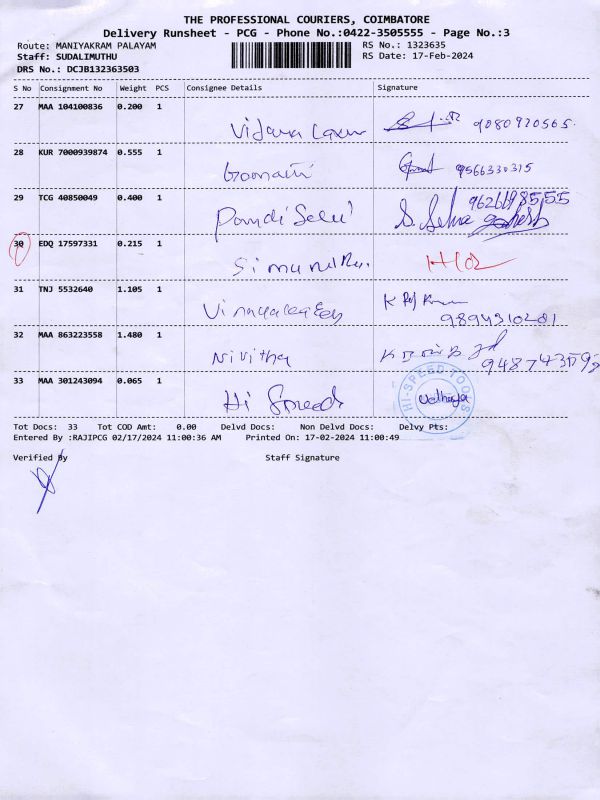 THE PROFESSIONAL COURIERS, COIMBATORE
Delivery Runsheet - PCG - Phone No.:0422-3505555 - Page No.:3
Route: MANIYAKRAM PALAYAM RS No.: 1323635
Staff: SUDALIMUTHU RS Date: 17-Feb-2024
DRS No.: DCJB132363503
S No Consignment No Weight PCS Consignee Details Signature
27 MAA 104100836 0.200 1
9080920565.
28 KUR 7000939874 0.555 1
Gomathi 9566330315
29 TCG 40850049 0.400 1
Pandi Selvi S. Selva ganesh
30 EDQ 17597331 0.215 1
31 TNJ 5532640 1.105 1
K Raj Kumar
9894310201
32 MAA 863223558 1.480 1
Nivitha
33 MAA 301243094 0.065 1
Hi Speed HI-SPEED TOOLS
Tot Docs: 33 Tot COD Amt: 0.00 Delvd Docs: Non Delvd Docs: Delvy Pts:
Entered By :RAJIPCG 02/17/2024 11:00:36 AM Printed On: 17-02-2024 11:00:49
Verified By Staff Signature